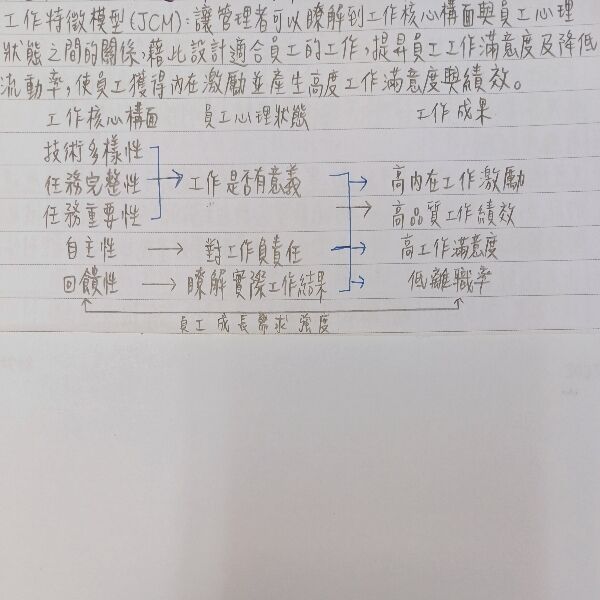 工作特徵模型(JCM):讓管理者可以瞭解到工作核心構面與員工心理
狀態之間的關係,藉此設計適合員工的工作,提昇員工工作滿意度及降低
流動率,使員工獲得內在激勵並產生高度工作滿意度與績效。
工作核心構面 員工心理狀態 工作成果
技術多樣性
任務完整性 → 工作是否有意義 → 高內在工作激勵
任務重要性 → 高品質工作績效
自主性 → 對工作負責任 → 高工作滿意度
回饋性 → 瞭解實際工作結果 → 低離職率
員工成長需求強度